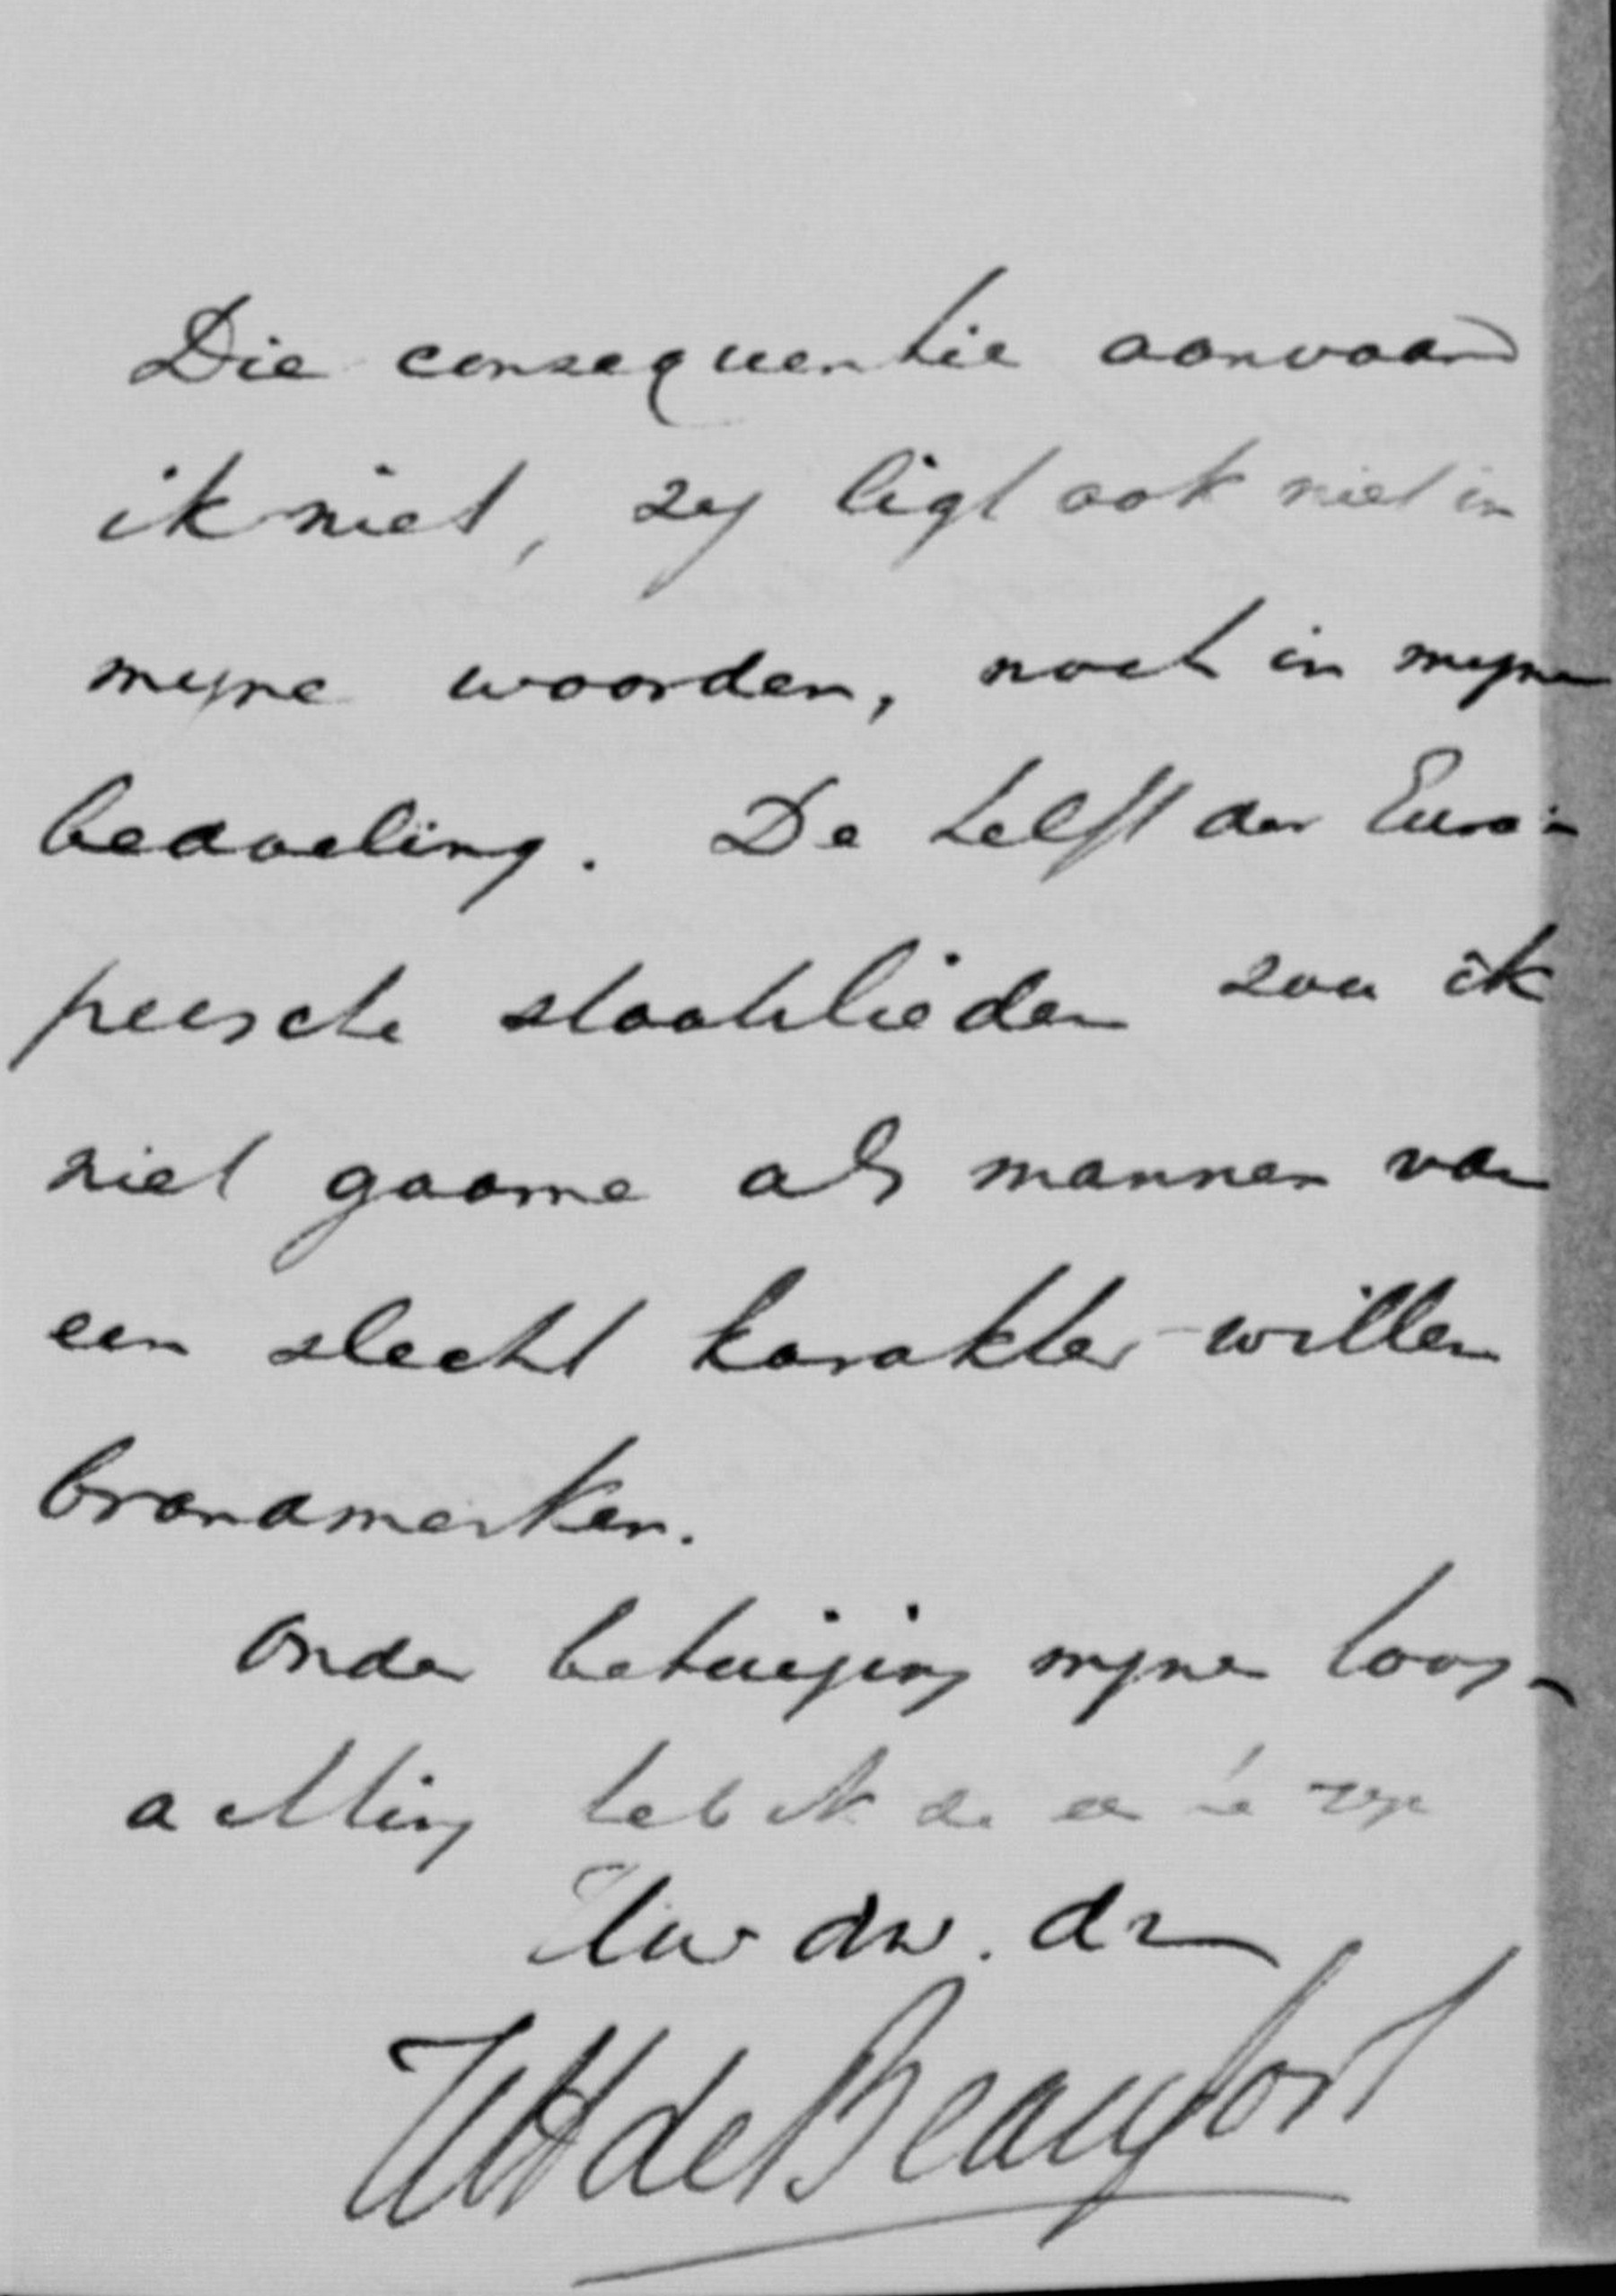 Die consequentie aanvaard
ik niet, zij ligt ook niet in
mijne woorden, noch in mijne
bedoeling. De helft der Euro-
peesche staatslieden zou ik
niet gaarne als mannen van
een slecht karakter willen
brandmerken.
Onder betuiging mijner hoog-
achting heb ik de eer te zijn
Uw dw. dr
WH de Beaufort